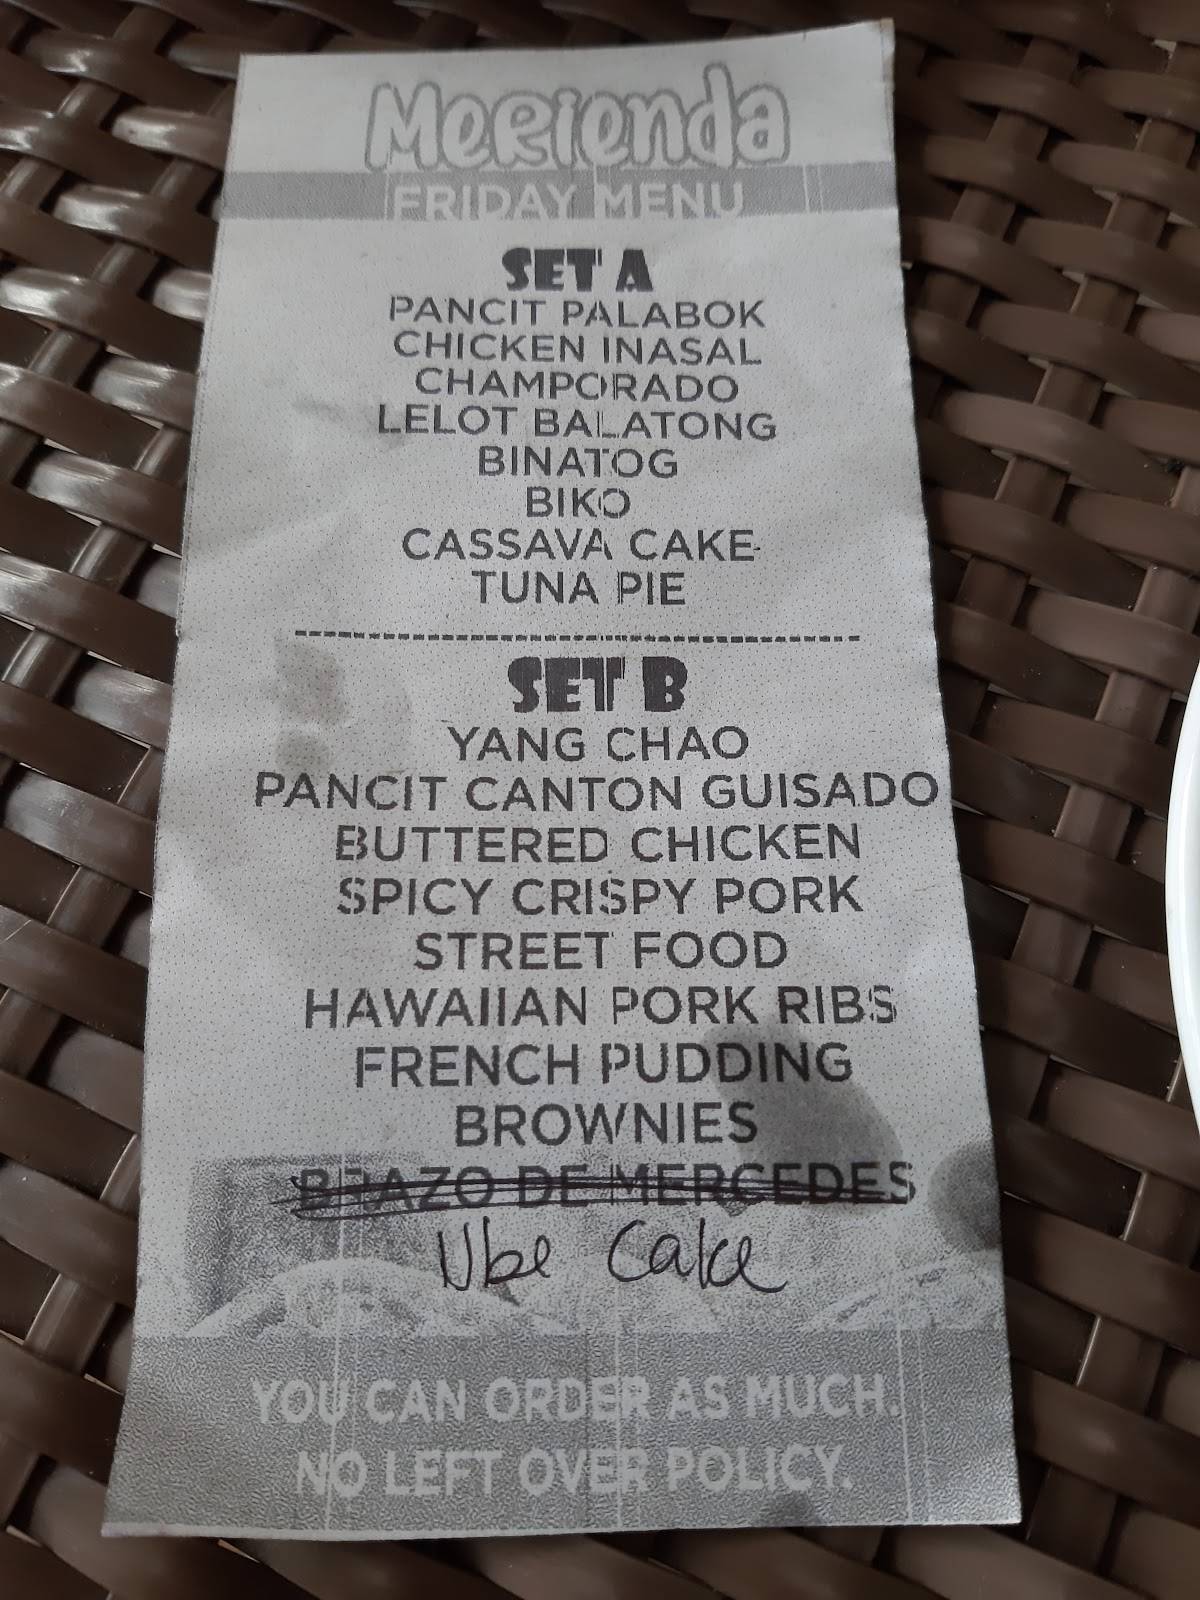 MeRienda
FRIDAY MENU
SET A
PANCIT PALABOK
CHICKEN INASAL
CHAMPORADO
LELOT BALATONG
BINATOG
BIKO
CASSAVA CAKE
TUNA PIE
SET B
YANG CHAO
PANCIT CANTON GUISADO
BUTTERED CHICKEN
SPICY CRISPY PORK
STREET FOOD
HAWAIIAN PORK RIBS
FRENCH PUDDING
BROWNIES
BRAZO DE MERCEDES
Ube Cake
YOU CAN ORDER AS MUCH.
NO LEFT OVER POLICY.